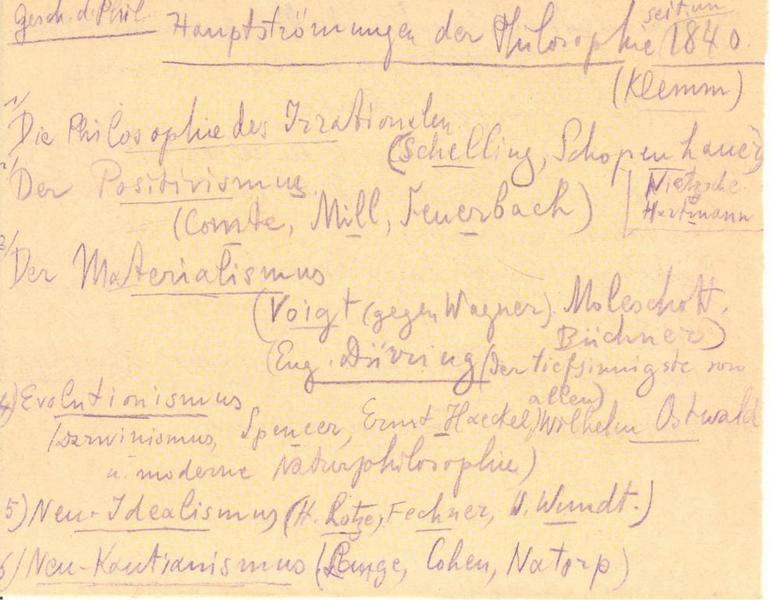 Gesch. d. Phil.
Hauptströmungen der Philosophie seit um 1840.
(Klemm)
1) Die Philosophie des Irrationalen
(Schelling, Schopenhauer,
Nietzsche
Hartmann
2) Der Positivismus
(Comte, Mill, Feuerbach)
3) Der Materialismus
(Voigt (gegen Wagner), Moleschott,
Büchner)
(Eug. Düring (der tiefsinnigste von
allen)
4) Evolutionismus
(Darwinismus, Spencer, Ernst Haeckel, Wilhelm Ostwald
u. moderne Naturphilosophie)
5) Neu-Idealismus (H. Lotze, Fechner, W. Wundt.)
6) Neu-Kantianismus (Lange, Cohen, Natorp)